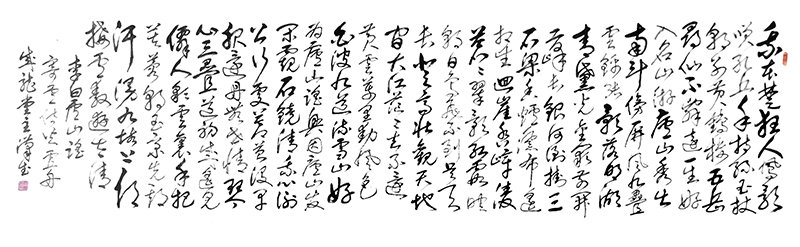 我本楚狂人凤歌
笑孔丘手持绿玉杖
朝别黄鹤楼五岳
寻仙不辞远一生好
入名山游庐山秀出
南斗傍屏风九叠
云锦张影落明湖
青黛光金阙前开二
峰长银河倒挂三
石梁香炉瀑布遥
相望回崖沓嶂凌
苍苍翠影红霞映
朝日鸟飞不到吴天
长登高壮观天地
间大江茫茫去不还
黄云万里动风色
白波九道流雪山好
为庐山谣兴因庐山发
闲窥石镜清我心谢
公行处苍苔没早
服还丹无世情琴
心三叠道初成遥见
仙人彩云里手把
芙蓉朝玉京先期
汗漫九垓上愿
接卢敖游太清
李白庐山谣
寄卢侍御虚舟